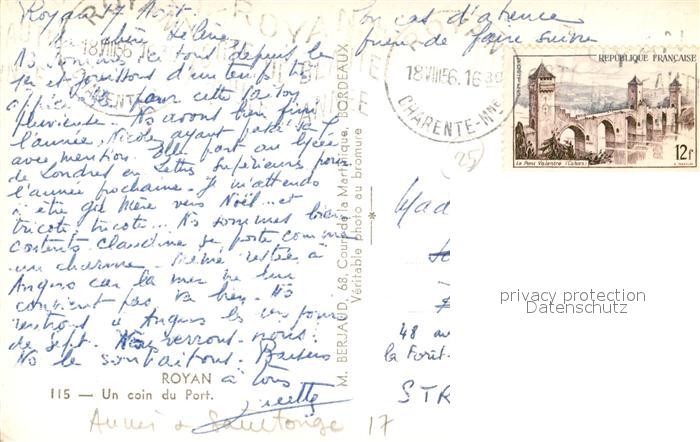 Royan 17 Août
Ma chère Hélène,
Ns sommes ici tous depuis le
1er et jouissons d'un temps très
pour cette saison
pluvieuse. Ns avons bien fini
l'année, Nicole ayant passé sa
avec mention. Elle part au lycée
de Londres en Lettres Supérieures pour
l'année prochaine. Je m'attends
à être gd Mère vers Noël... et
tricote, tricote... Ns sommes bien
contents. Claudine se porte comme
un charme. Mémé restée à
Angers car la mer ne lui
convient pas. Ns
rentrons à Angers les
de Sept. Nous verrons-nous.
Ns le souhaitons. Baisers
à tous
En cas d'absence
prière de faire suivre
18 VIII 56. 16
ROYAN
18 VIII 56. 16 30
CHARENTE-Mme
RÉPUBLIQUE FRANÇAISE
POSTES
Le Pont Valentré (Cahors)
12f
25
Mad
48 av
la Forêt-
STR
M. BERJAUD, 68, Cours de la Martinique, BORDEAUX
Véritable photo au bromure
ROYAN
115 — Un coin du Port.
Aunis & Saintonge 17
privacy protection
Datenschutz